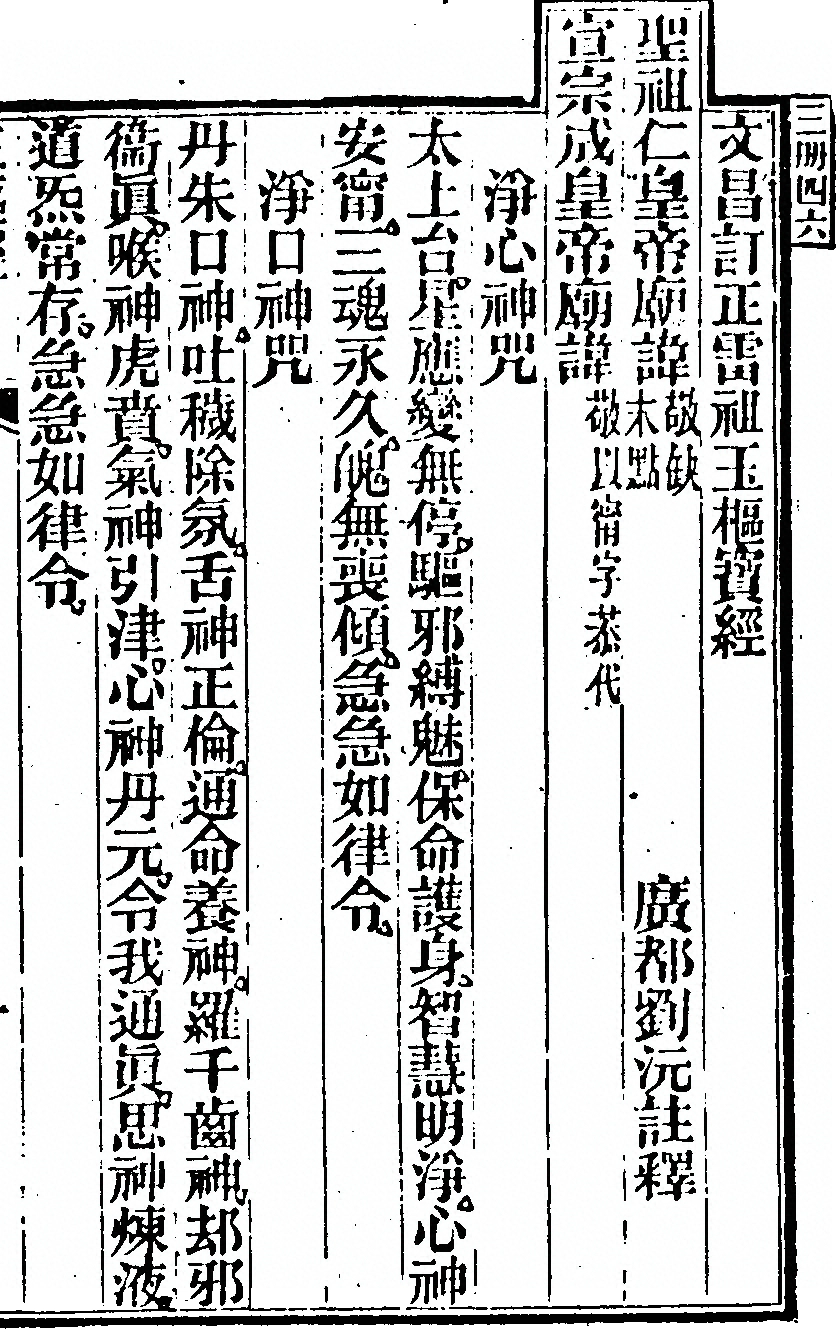 三册四六
文昌訂正雷祖玉樞寶經
聖祖仁皇帝廟諱敬缺末點 廣都劉沅註釋
宣宗成皇帝廟諱敬以甯字恭代
淨心神咒
太上台星。應變無停。驅邪縛魅。保命護身。智慧明淨。心神
安甯。三魂永久。魄無喪傾。急急如律令。
淨口神咒
丹朱口神。吐穢除氛。舌神正倫。通命養神。羅千齒神。却邪
衞眞。喉神虎賁。氣神引津。心神丹元。令我通眞。思神煉液。
道炁常存。急急如律令。